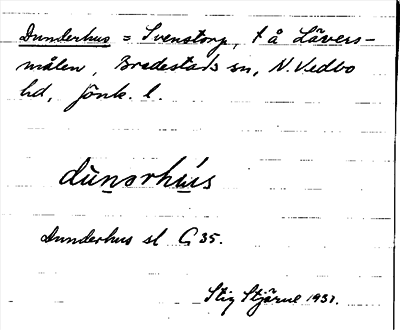 Dunderhus = Svenstorp, t å Lövers-
målen, Bredestads sn, N. Vedbo
hd, Jönk. l.
dùnərhús
Dunderhus sl G 35.
Stig Stjärne 1931.